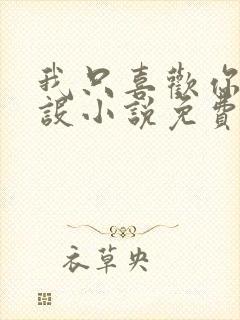 我只喜歡你
設小說免費
衣草央